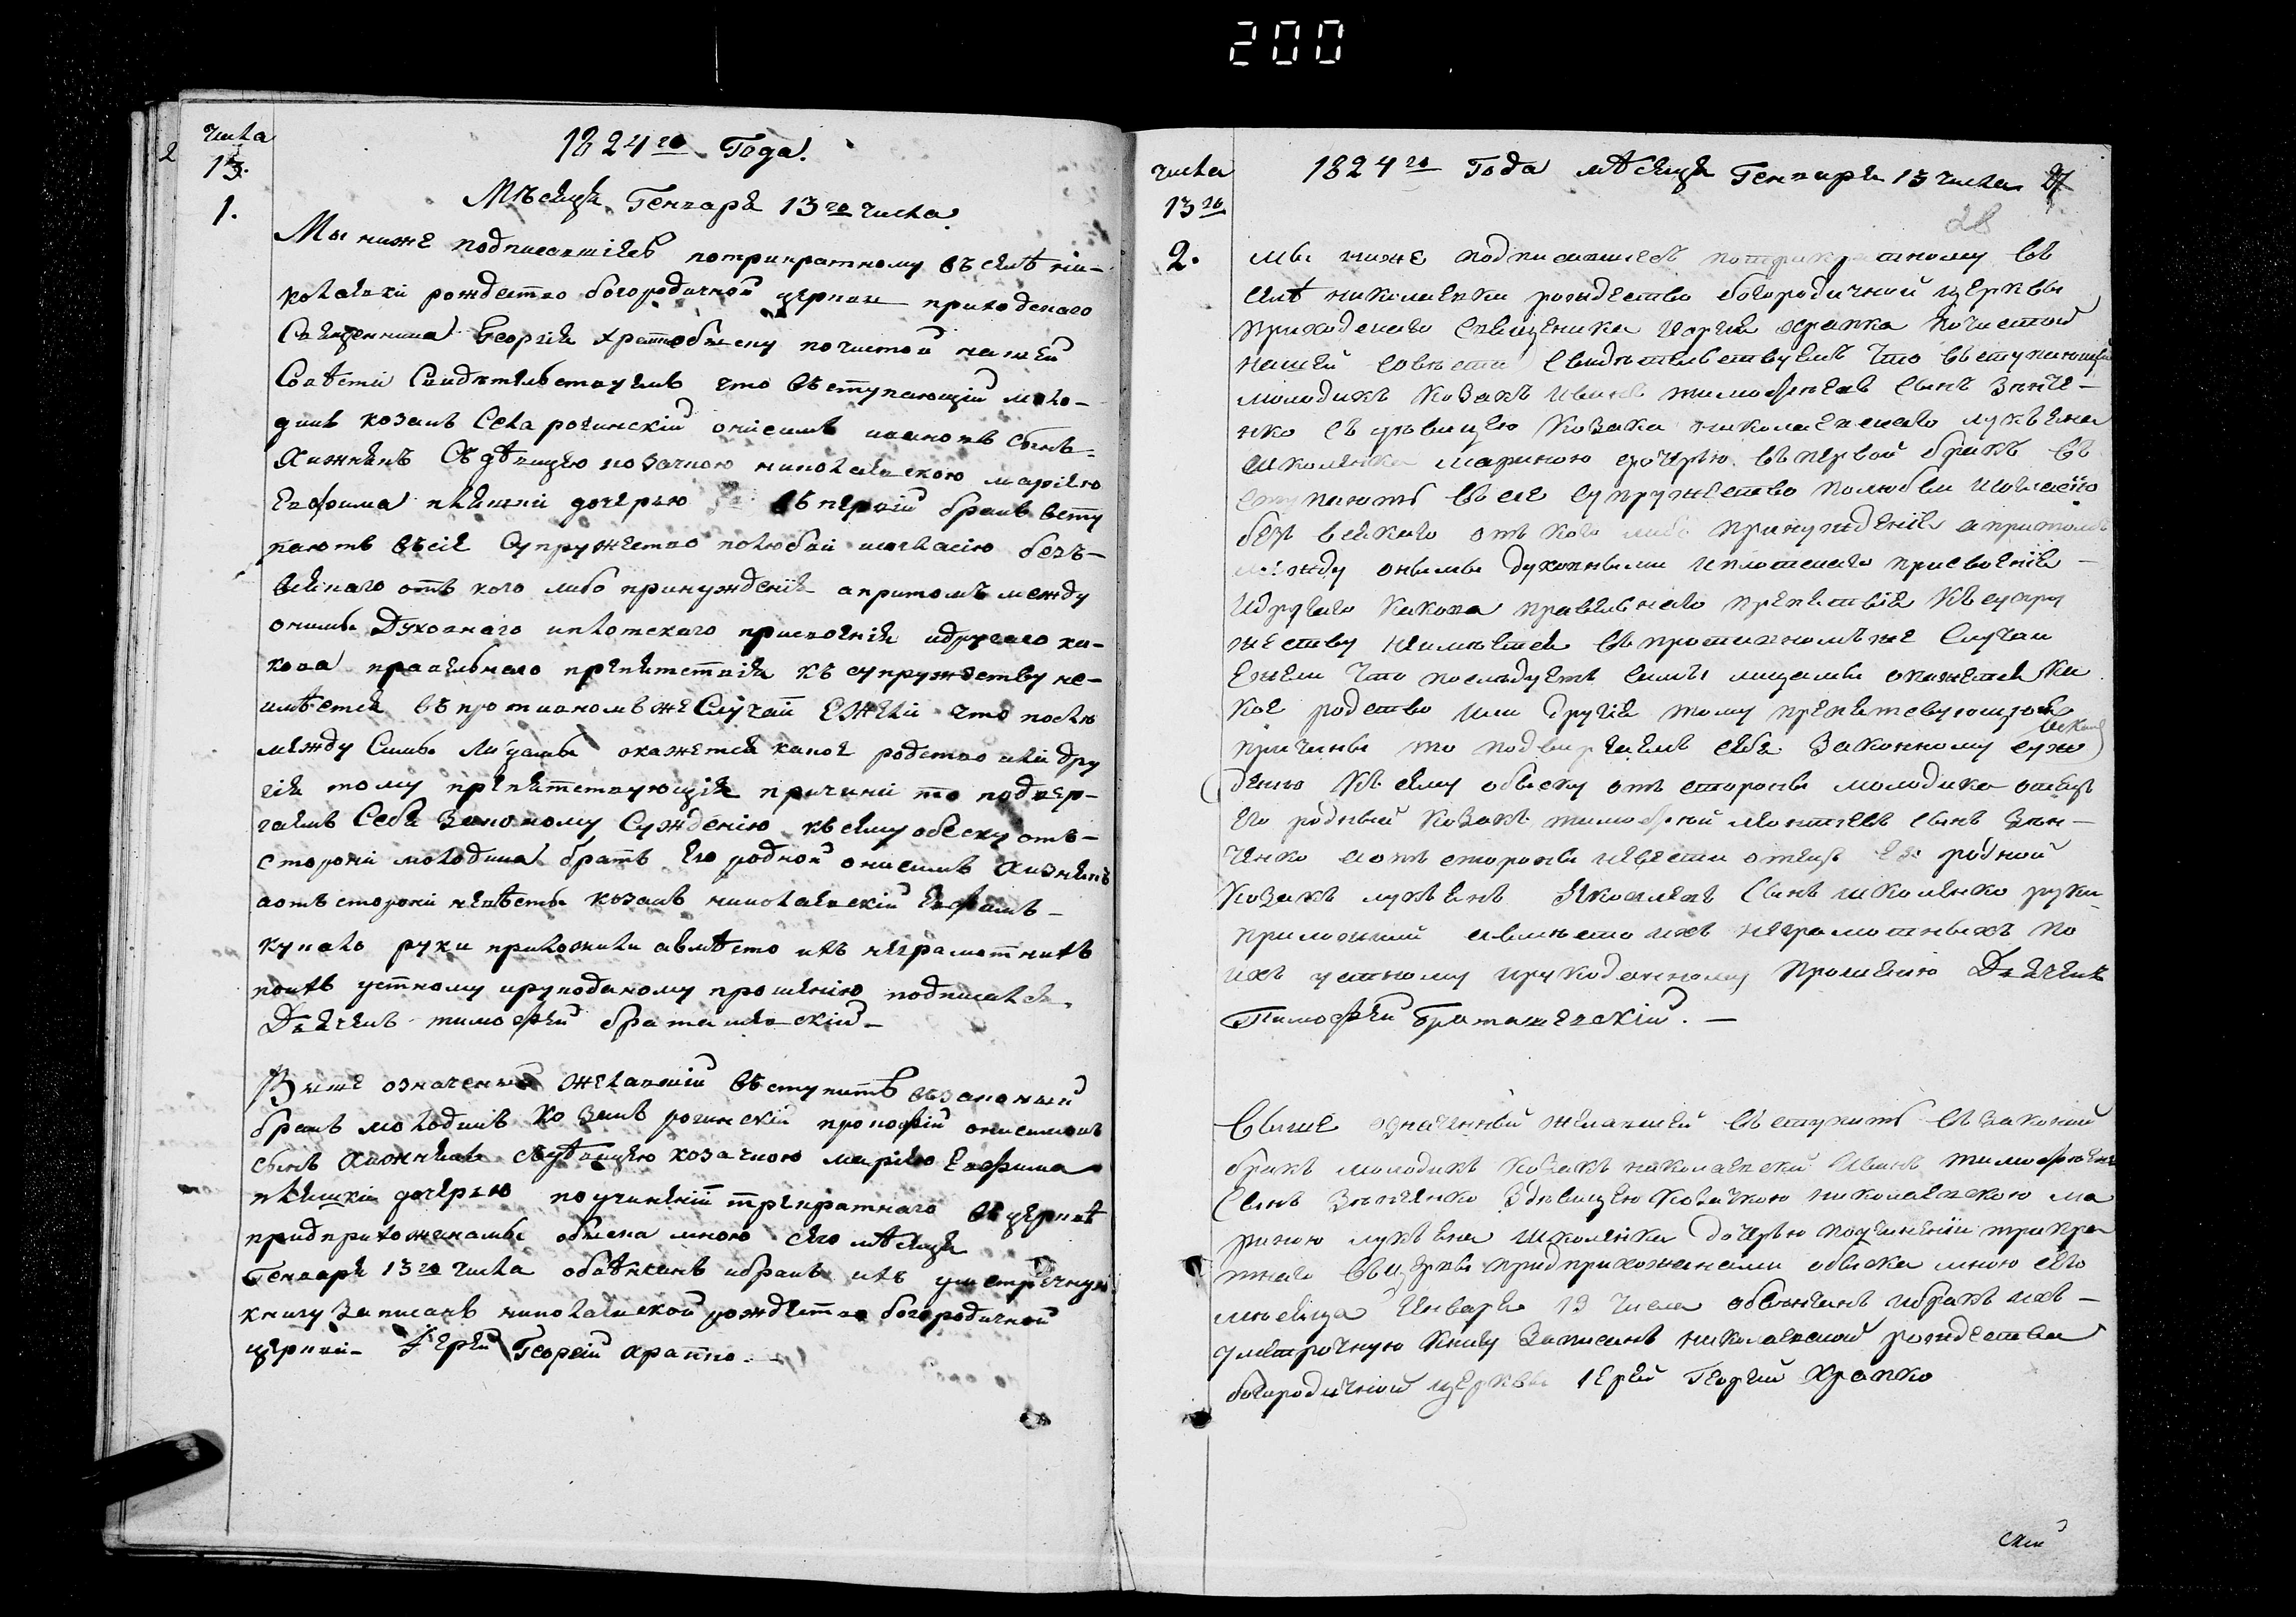 200
числа
2
13.
1824го Года.
Мѣсяца Генваря 13го числа.
1.
Мы ниже подписавшіесь потрикратному въ селѣ ни-
колаевки рождество богородичной церкви приходскаго
Священника Георгія Храпко обыску почистой нашей
Совѣсти Свидѣтельствуемъ что въступающій моло-
дикъ козакъ рогинскій онисимовъ сынъ
Хижнякъ Съ дѣвицею козачкою николаевскою маріею
Евфима дочерью въ первій бракъ всту
паютъ въсіе Супружество полюбви исогласію безъ-
всякаго отъ кого либо принужденія апритомъ между
онимы Духовнаго иплотскаго присвоенія идругаго ка-
кова правильнаго препятствія къ супружеству не-
имѣется въ противномъ же Случаи Ежели что послю
между Симы Лицамы окажется какое родство или дру
гія тому препятствующія причини то подвер-
гаемъ Себя Законому Сужденію къ сему обыску отъ-
сторони молодика братъ Его родной онисимъ Хижнякъ
аотъ сторони невѣсты козакъ николаевскій Евфимъ-
руки приложили авмѣсто ихъ неграмотнихъ
поихъ устному ирукоданому прошенію подписался
Дьячекъ тимофей браташевскій-
Више означеный желавшій въступить взаконый
бракъ молодикъ козакъ рогинскій прокофій онисимовъ
сынъ Хижнякъ сдѣвицею козачкою маріею Евфима
дочерью по учиненіи трикратнаго въ церквѣ
придприхожанамы обыска мною сего мѣсяца
Генваря 13го числа обвѣнчанъ ибракъ ихъ уместричную
книгу Записанъ николаевской рождество богородичной
церкви- Іерей Георгій Храпко.
числа
1824го Года мѣсяца Генваря 13 числа 27
13го
28
2.
мы ниже подписавшіесь потрикратному въ
селѣ николаевки рождество богородичной церквы
приходскаго Священика Георгія храпка почистой
нашей совѣсти Свидѣтельствуемъ что въступающій
молодикъ козакъ иванъ тимофѣевъ Сынъ Зѣнче-
нко съ дѣвицею козака николаевскаго лукьяна
школенка мариною дочерью въ первой бракъ въ
ступаютъ въ сіе супружество полюбви исогласію
безъ всякаго отъ кого либо принужденія апритомъ
между онымы духовнымы иплотскаго присвоенія-
идругаго какова правильнаго препятствія къ супру
жеству неимѣется въпротивномъ же Случаи
Ежели что послѣдуетъ симы лицамы окажется ка
кое родство или другія тому препятсвующія
причины то подвергаемъ себя Законному сужо
денію къ сему обыску отъ стороны молодика отецъ
его родный козакъ тимофей сынъ Зѣн-
ченко аотъ стороны невести отецъ Ея родной
козакъ лукьянъ Яковлевъ Сынъ школенко руки
приложили авмѣсто ихъ неграмотныхъ по
ихъ устному ирукоданному прошенію Дьячекъ
Тимофей Браташевскій.-
Више означенный желавшей въступить въ законый
бракъ молодикъ козакъ николаевскій Иванъ тимофѣевъ
Сынъ Зѣнченко здѣвицею козачкою николаевскою ма
риною лукьяна школенка дочерью поучиненіи трикра
тнаго въ церквы придприхожанами обыска мною сего
мѣсяца Января 13 числа обвѣнчанъ ибракъ ихъ-
уместричную книгу Записанъ николаевской рождества
богородичной церквы Іерей Георгий Храпко
скій